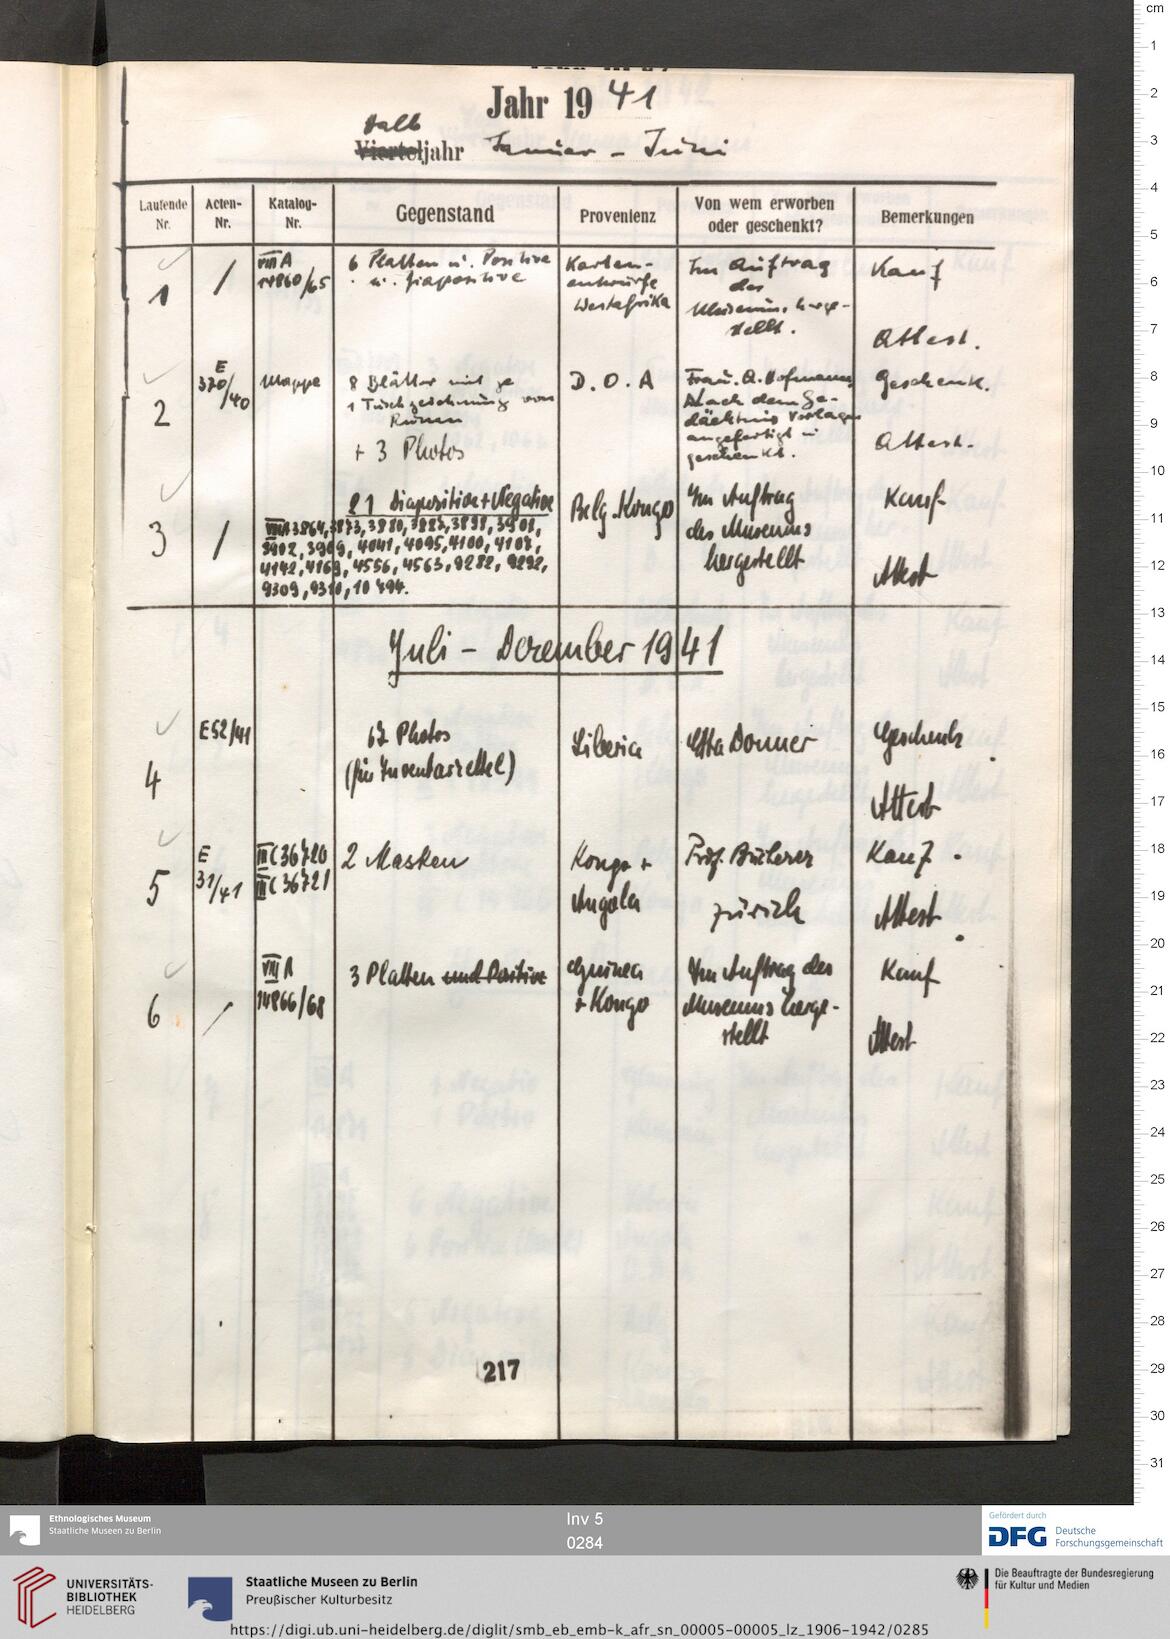 Jahr 19 41
Halb
Vierteljahr Januar - Juni
Laufende Nr.
Acten-Nr.
Katalog-Nr.
Gegenstand
Provenienz
Von wem erworben oder geschenkt?
Bemerkungen
1
/
VIII A
14860/65
6 Platten u. Positive
u. Diapositive
Karten-
entwürfe
Westafrika
Im Auftrag
des
Museums herge-
stellt.
Kauf
Attest.
2
E
370/40
Mappe
8 Blätter mit je
1 Tuschzeichnung von
+ 3 Photos
D. O. A
Frau. A. Hofmann
Nach dem Ge-
dächtnis Vorlagen
angefertigt u
geschenkt.
Geschenk.
Attest.
3
/
21 Diapositive + Negative
VIII A 3864, 3873, 3880, 3883, 3898, 3901,
3902, 3909, 4041, 4095, 4100, 4107,
4142, 4169, 4556, 4563, 9282, 9292,
9309, 9310, 10494.
Belg. Kongo
Im Auftrag
des Museums
hergestellt
Kauf
Attest
Juli - Dezember 1941
4
E52/41
67 Photos
(für Inventarzettel)
Liberia
Etta Donner
Geschenk
Attest
5
E
31/41
III C 36720
III C 36721
2 Masken
Kongo +
Angola
Prof. Bücherer
Zürich
Kauf
Attest
6
/
VIII A
14866/68
3 Platten und Positive
Guinea
+ Kongo
Im Auftrag des
Museums herge-
stellt
Kauf
Attest
217
cm
1
2
3
4
5
6
7
8
9
10
11
12
13
14
15
16
17
18
19
20
21
22
23
24
25
26
27
28
29
30
31
Ethnologisches Museum
Staatliche Museen zu Berlin
Inv 5
0284
Gefördert durch
DFG Deutsche
Forschungsgemeinschaft
UNIVERSITÄTS-
BIBLIOTHEK
HEIDELBERG
Staatliche Museen zu Berlin
Preußischer Kulturbesitz
Die Beauftragte der Bundesregierung
für Kultur und Medien
https://digi.ub.uni-heidelberg.de/diglit/smb_eb_emb-k_afr_sn_00005-00005_lz_1906-1942/0285